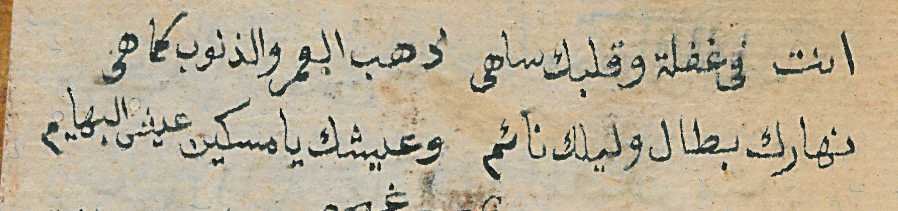 انت في غفلة وقلبك ساهى ذهب العمر والذنوب كما هى
نهارك بطال وليلك نائم وعيشك يا مسكين عيش البهايم